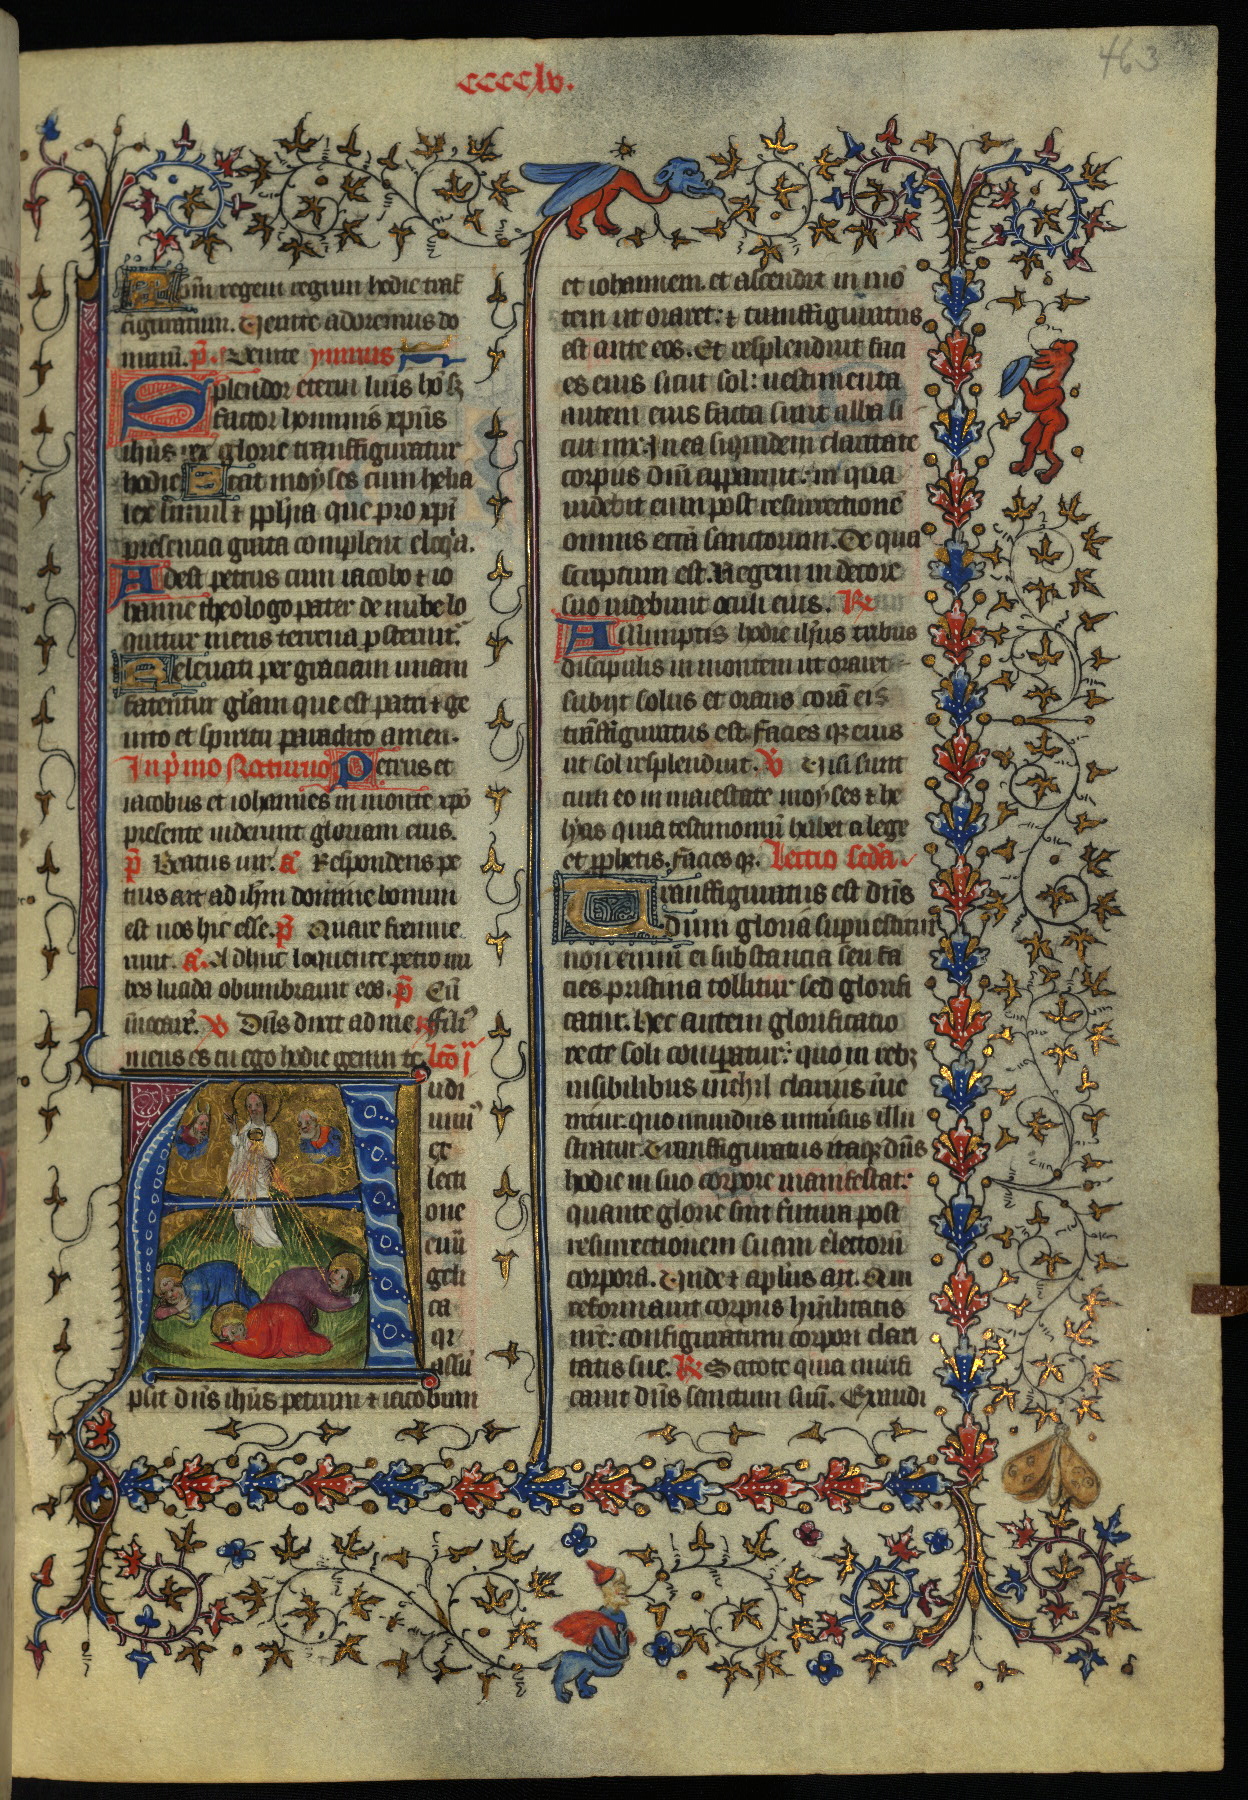 463
cccclv.
om̄ regem regum hodie trāſ
figuratum. Venite adoremus do
minū. p̄. Venite ymnus
Splendor eterni luīs hoīs
factor hominis xp̄us
ihus rex glorie tranſfiguratur
hodie Stat moyses cum helia
lex simul ⁊ pphīa que pro xp̄i
presencia grata complent eloq̄a.
Adest petrus cum iacobo ⁊ io
hanne theologo pater de nube lo
quitur mens terrena p̄sternit.
Eleuati per graciam unam
fatentur gl̄am que est patri ⁊ ge
nito et spiritu paraclito amen.
In p̄mo Nocturno Petrus et
iacobus et iohannes in monte xp̄o
presente uiderunt gloriam eius.
p̄ Beatus uir. a̅ Respondens pe
trus ait ad ih̄m domine bonum
est nos hic esse. p̄ Quare fremue
runt. a̅. Adhuc loquente petro nu
bes lucida obumbrauit eos. p̄ Cū
īuocarē. V Dn̄s dixit ad me ffili᷒
meus es tu ego hodie genui te. lc̄o j
Audi
uim᷒
ex
lecti
one
euū
geli
ca
qr
assū
psit dn̄s ih̄us petrum ⁊ iacobum
et iohannem. et ascendit in mō
tem ut oraret: ⁊ tranſfiguratus
est ante eos. Et resplenduit faci
es eius sicut sol: uestimenta
autem eius facta sunt alba si
cut nix. In ea siquidem claritate
corpus dn̄i apparuit: in qua
uidebit eum post resurrectionē
omnis ecc̄a sanctorum. De qua
scriptum est. Regem in decore
suo uidebunt oculi eius. R
Assumptis hodie ih̄us tribus
discipulis in montem ut oraret
subijt solus et orans corā eis
trāſfiguratus est. Facies qꝫ eius
ut sol resplenduit. V Uisi sunt
cum eo in maiestate moyses ⁊ he
lyas quia testimoniū habet a lege
et pp̄hetis. Facies qꝫ. Lectio sc̄da
Tranſfiguratus est dn̄s
dum gloriā suꝑuestitur
non enim ei substancia seu fa
cies pristina tollitur sed glorifi
catur. Hec autem glorificatio
recte soli comparatur: quo in rebꝫ
uisibilibus nichil clarius īue
nitur. quo mundus uniūsus illu
stratur. Tranſfiguratus itaqꝫ dn̄s
hodie in suo corpore manifestat:
quante glorie sint futura post
resurrectionem suam electorū
corpora. Unde ⁊ apl̄us ait. Qui
reformauit corpus humilitatis
nr̄e: configuratum corpori clari
tatis sue. R Scitote quia mirifi
cauit dn̄s sanctum suū. Exaudi